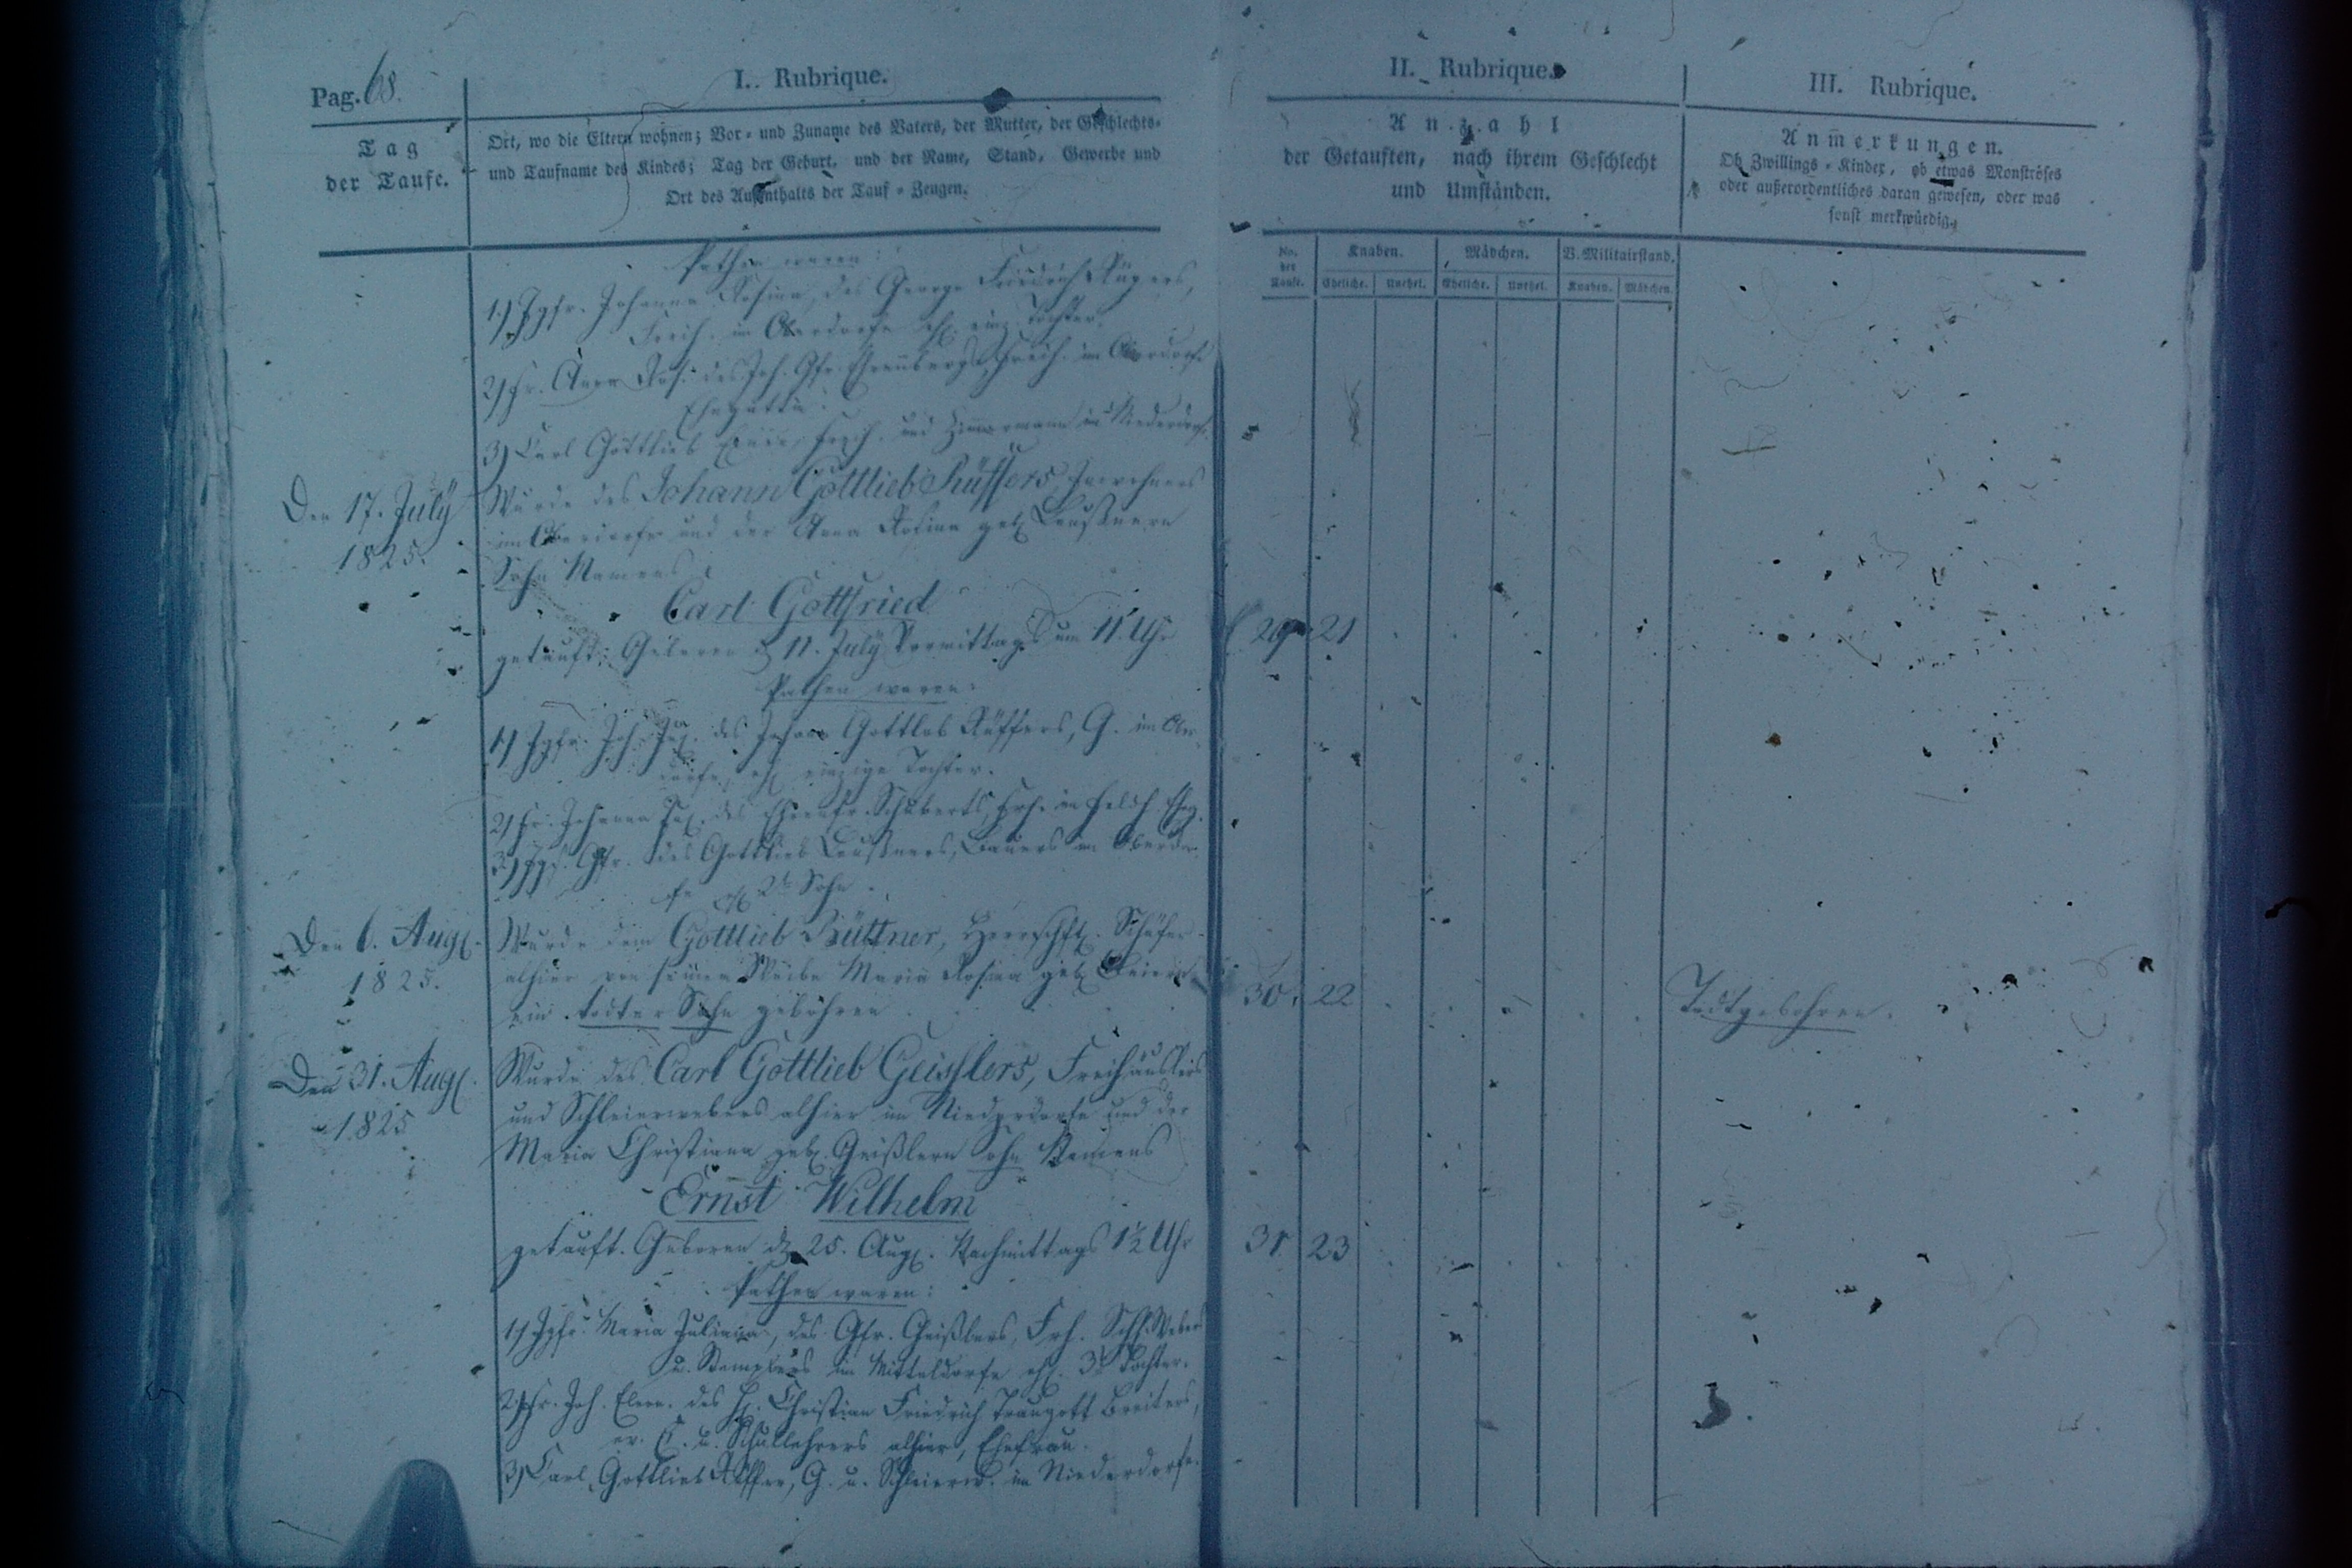 Pag. 68.
I. Rubrique.
Tag
der Taufe.
Ort, wo die Eltern wohnen; Vor- und Zuname des Vaters, der Mutter, der Geschlechts-
und Taufname des Kindes; Tag der Geburt, und der Name, Stand, Gewerbe und
Ort des Aufenthalts der Tauf-Zeugen.
Pathen waren:
1.) Jgfr. Johanna Rosina, des George Friedrich
Freih. im Oberdorfe ehl. einz. Tochter.
2) Fr. Anna Ros. des Joh. Gfr. Ehrenbergs, Freih. im Oberdorfe
Ehegattin.
3) Carl Gottlieb Freih. und Zimmermann in Niederdorfe.
Den 17. July
1825.
Wurde des Johann Gottlieb Rüffers, Inwohners
im Oberdorfe und der Anna Rosina geb.
Sohn Namens
Carl Gottfried
getauft. Geboren d. 11. July Vormittags um 11 Uhr
Pathen waren:
1) Jgfr. Joh. des Johann Gottlob Rüffers, G. im Ober-
dorfe, ehl. einzige Tochter.
2) Fr. Johanna des Ehrenfr. Schuberts, Frh. in
3.) Jgs. Gfr. des Gottlieb Bauers im Oberdor-
fe ehl. 2r Sohn.
Den 6. Aug.
1825.
Wurde dem Gottlieb Büttner, Herrschftl. Schäfer
alhier von seinem Weibe Maria Rosina geb.
ein todter Sohn gebohren.
Den 31. Aug.
1825
Wurde des Carl Gottlieb Geisslers, Freihäuslers
und Schleierwebers alhier im Niederdorfe und der
Maria Christiana geb. Geißlern Sohn Namens
Ernst Wilhelm
getauft. Geboren d. 25. Aug. Nachmittags 1½ Uhr
Pathen waren:
1) Jgfr. Maria Juliana, des Gfr. Geißlers, Frh. Schl. Webers
u. im Mitteldorfe ehl. 3t Tochter.
2) Fr. Joh. Eleon. des H. Christian Friedrich Traugott Breiters,
ev. C. u. Schullehrers alhier, Ehefrau.
3) Carl Gottlieb Rüffer, G. u. Schleierw. im Niederdorfe.
II. Rubrique.
Anzahl
der Getauften, nach ihrem Geschlecht
und Umständen.
No. der Taufe.
Knaben. Mädchen. V. Militairstand.
Eheliche. Unehel. Eheliche. Unehel. Knaben. Mädchen.
29 21
30. 22
31 23
III. Rubrique.
Anmerkungen.
Ob Zwillings-Kinder, ob etwas Monströses
oder außerordentliches daran gewesen, oder was
sonst merkwürdig.
Todtgebohren.